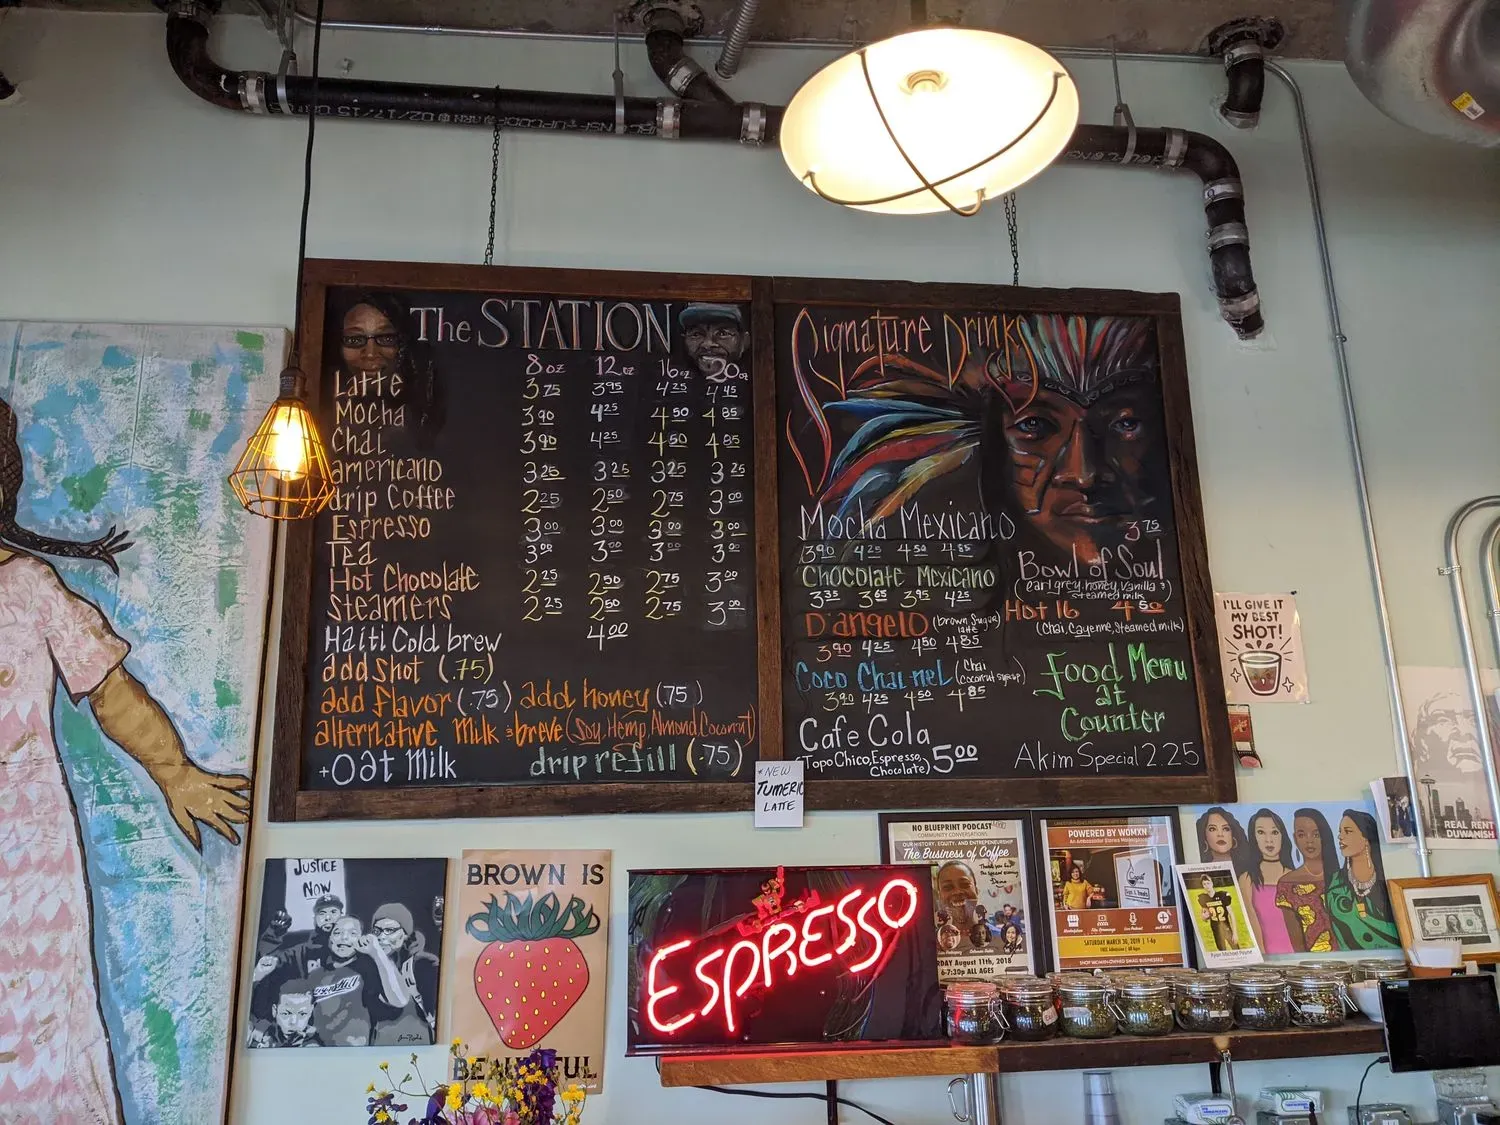 The STATION
8oz 12oz 16oz 20oz
Latte 3.75 3.95 4.25 4.45
Mocha 3.90 4.25 4.50 4.85
Chai 3.90 4.25 4.50 4.85
americano 3.25 3.25 3.25 3.25
drip Coffee 2.25 2.50 2.75 3.00
Espresso 3.00 3.00 3.00 3.00
Tea 3.00 3.00 3.00 3.00
Hot Chocolate 2.25 2.50 2.75 3.00
Steamers 2.25 2.50 2.75 3.00
Haiti Cold brew 4.00
add shot (.75)
add flavor (.75) add honey (.75)
alternative milk & breve (Soy, Hemp, Almond, Coconut)
+Oat Milk drip refill (.75)
Signature Drinks
Mocha Mexicano
3.90 4.25 4.50 4.85
Chocolate Mexicano
3.35 3.65 3.95 4.25
D'angelo (brown Sugar latte)
3.90 4.25 4.50 4.85
Coco Chai-nel (Chai Coconut syrup)
3.90 4.25 4.50 4.85
Cafe Cola
(Topo Chico, Espresso, Chocolate) 5.00
3.75
Bowl of Soul
(earl grey, honey, Vanilla &
steamed milk)
Hot 16 4.50
(Chai, Cayenne, Steamed milk)
Food Menu
at
Counter
Akim Special 2.25
*NEW
TUMERIC
LATTE
I'LL GIVE IT
MY BEST
SHOT!
REAL RENT
DUWAMISH
JUSTICE
NOW
BROWN IS
BEAUTIFUL
ESPRESSO
NO BLUEPRINT PODCAST
COMMUNITY CONVERSATIONS
OUR HISTORY, EQUITY, AND ENTREPRENEURSHIP
The Business of Coffee
August 11th, 2018
6-7:30p ALL AGES
POWERED BY WOMXN
SATURDAY MARCH 30, 2019 | 1-6p
SHOP WOMXN-OWNED SWAG BUSINESSES!
22